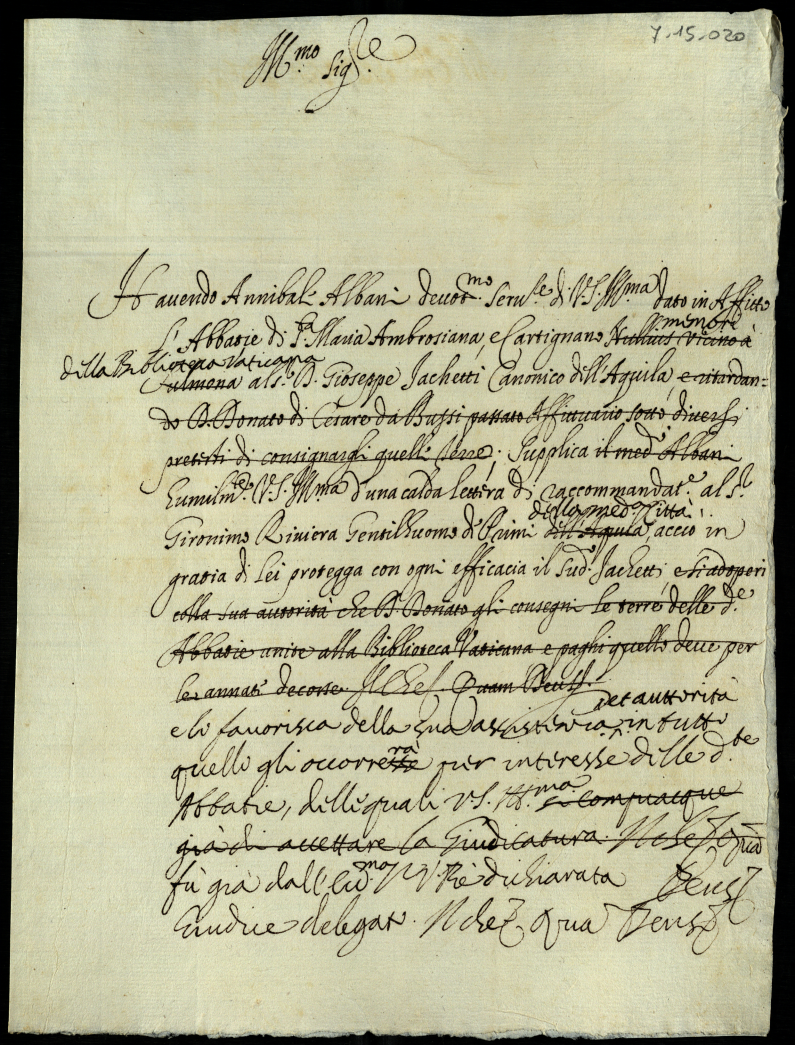 7.15.020
Ill.mo Sig.re
Havendo Annibale Albani devot.mo Serv.re di V.S. Ill.ma dato in Affitto
l'Abbatie di S.ta Maria Ambrosiana, e Cartignano membre Nullius vicino à
della Biblioteca Vaticana
Sulmona al s.r D. Gioseppe Jachetti Canonico dell'Aquila, e ritardan=
do D. Donato di Cesare da Bussi passato Affittuario sotto diversi
pretesti di consignargli quelle terre; Supplica il med.o Albani
humilm.te V.S. Ill.ma d'una calda lettera di raccommandat.e al s.r
della med.a Città
Gironimo Riviera Gentilhuomo de Primi dell'Aquila, acciò in
gratia di Lei protegga con ogni efficacia il sud.o Jachetti, e si adoperi
colla sua autorità che D. Donato gli consegni le terre delle d.e
Abbatie unite alla Biblioteca Vaticana e paghi quello deve per
le annate decorse. Il che Quam Deus
et auttorità
e lo favorisca della sua assistenza in tutto
quello gli occorrerà per interesse delle d.te
Abbatie, delle quali V.S. Ill.ma si compiacque
già di accettare la Giudicatura. Il che quam
fù già dall' dichiarata Deus
Giudice delegato. Il che qua Deus